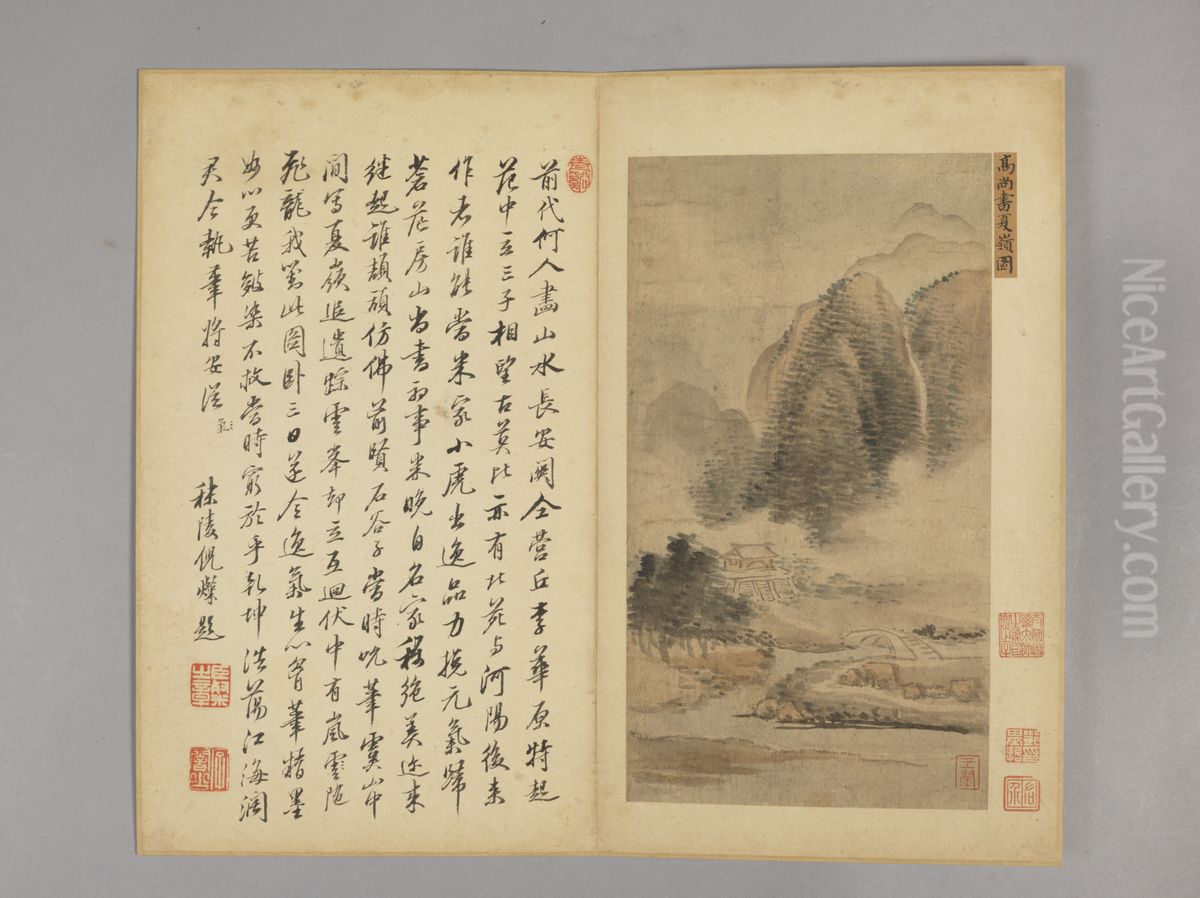 高尚書夏嶺圖
前代何人畫山水長安關仝營丘李華原特起
范中立三子相望古莫比亦有北苑与河陽後来
作者誰能當米家小虎出逸品力挽元氣歸
蒼茫房山尚書初事米晚自名家稱絕美迩来
继起誰頡頏仿佛前賢石谷子當時吮筆虞山中
間寫夏嶺追遺踪雲峯却立互迴伏中有嵐雲隨
飛龍我對此圖卧三日遂令逸氣生心胷筆精墨
妙心更苦皴染不放當時窮於乎乾坤浩蕩江海濶
君今執筆將安從
氣
秣陵倪燦題
NiceArtGallery.com